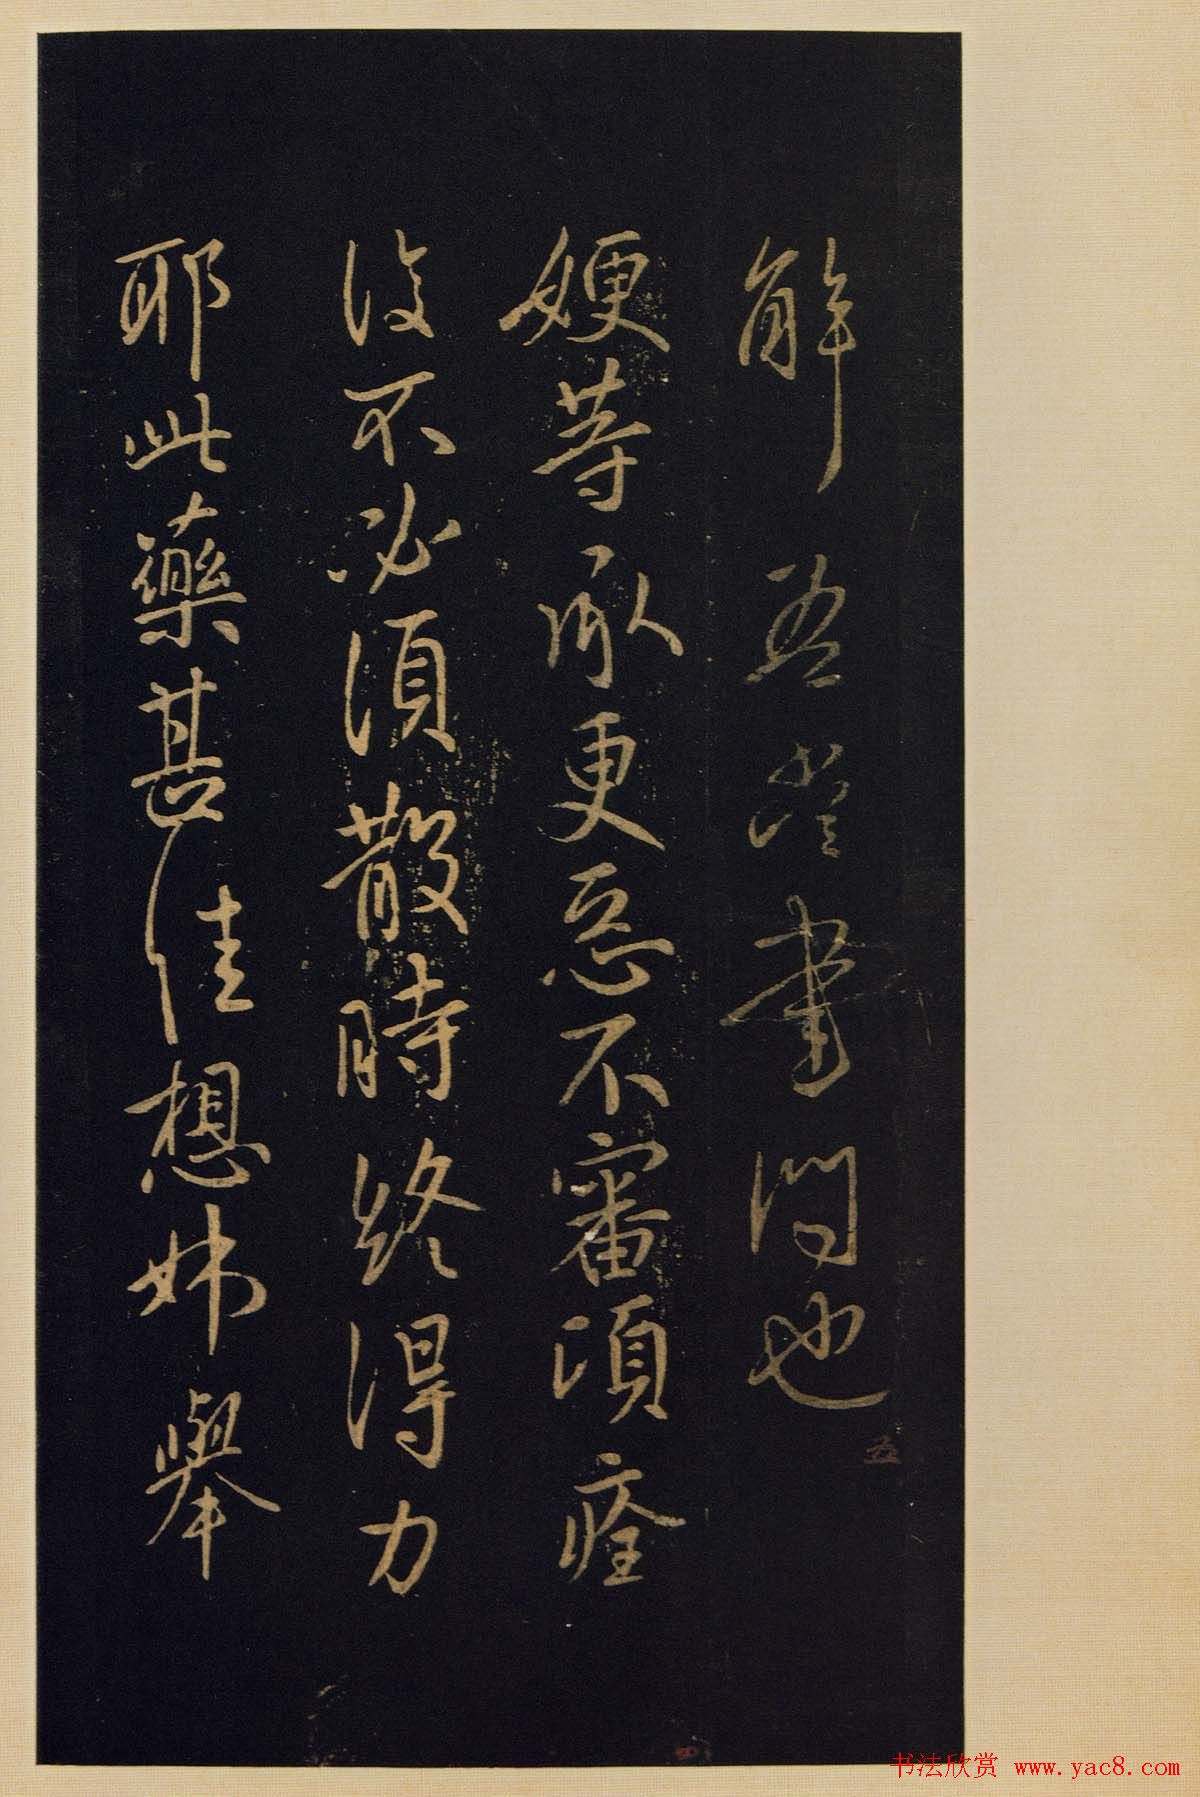 解吾書問也
五
嫂等承更惡不審須痊
復不必須散時終得力
耶此藥甚佳想姊舉
书法欣赏 www.yac8.com